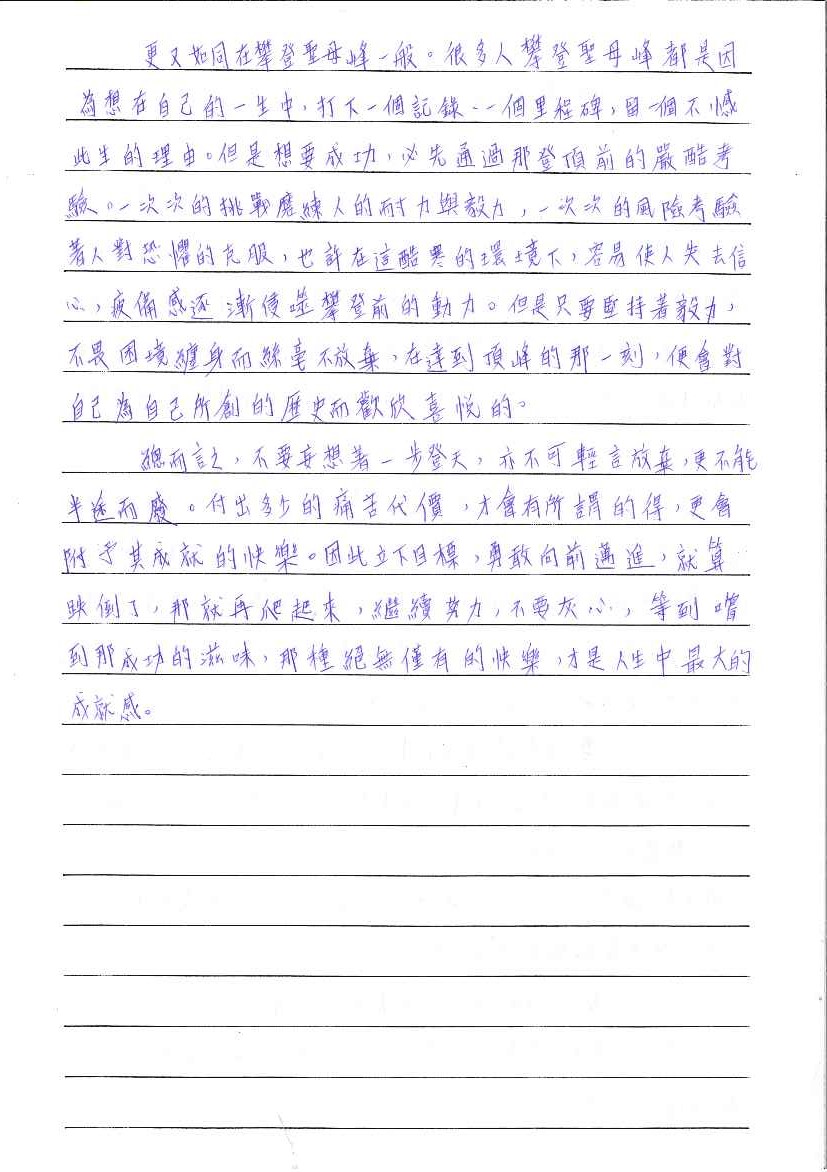 更又如同在攀登聖母峰一般。很多人攀登聖母峰都是因
為想在自己的一生中,打下一個記錄、一個里程碑,留一個不憾
此生的理由。但是想要成功,必先通過那登頂前的嚴酷考
驗。一次次的挑戰磨練人的耐力與毅力,一次次的風險考驗
著人對恐懼的克服,也許在這酷寒的環境下,容易使人失去信
心,疲備感逐漸侵噬攀登前的動力。但是只要堅持著毅力,
不畏困境纏身而絲毫不放棄,在達到頂峰的那一刻,便會對
自己為自己所創的歷史而歡欣喜悅的。
總而言之,不要妄想著一步登天,亦不可輕言放棄,更不能
半途而廢。付出多少的痛苦代價,才會有所謂的得,更會
附予其成就的快樂。因此立下目標,勇敢向前邁進,就算
跌倒了,那就再爬起來,繼續努力,不要灰心,等到嚐
到那成功的滋味,那種絕無僅有的快樂,才是人生中最大的
成就感。